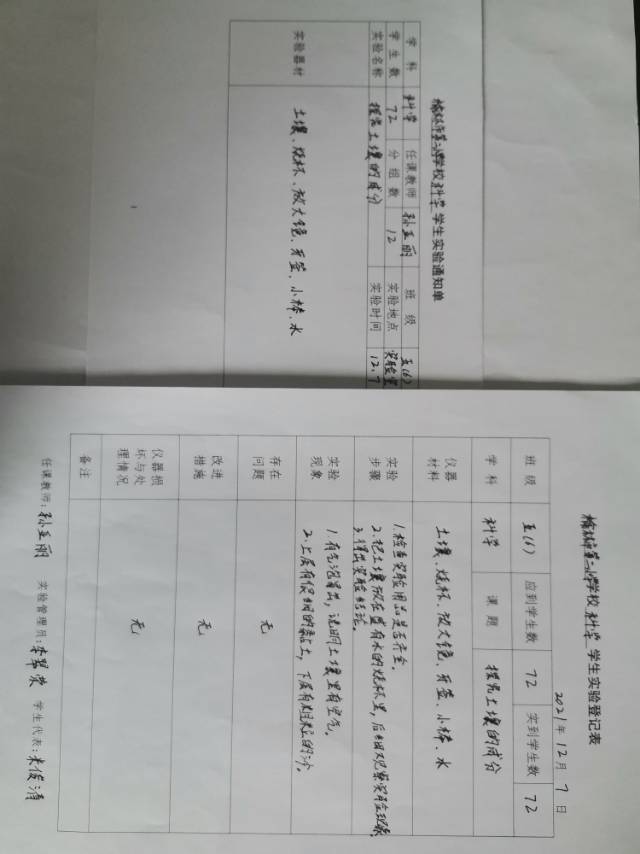 榆林市第二小学校科学学生实验通知单
学科 科学 任课教师 孙亚丽 班级 五(6)
学生数 72 分组数 12 实验地点 实验室
实验名称 探究土壤的成分 实验时间 12.7
实验器材 土壤、烧杯、放大镜、牙签、小棒、水
学校科学学生实验登记表
2021年12月7日
班级 五(6) 应到学生数 72 实到学生数 72
学科 科学 课题 探究土壤的成分
仪器材料 土壤、烧杯、放大镜、牙签、小棒、水
实验步骤 1.检查实验用品是否齐全。
2.把土壤放在盛有水的烧杯里,后细观察实验现象
3.得出实验结论。
实验现象 1.有气泡冒出,说明土壤里有空气。
2.上层有很细的黏土,下层有大颗粒的沙。
存在问题 无
改进措施 无
仪器损坏与处理情况 无
备注
任课教师:孙亚丽 实验管理员:李 学生代表:米俊